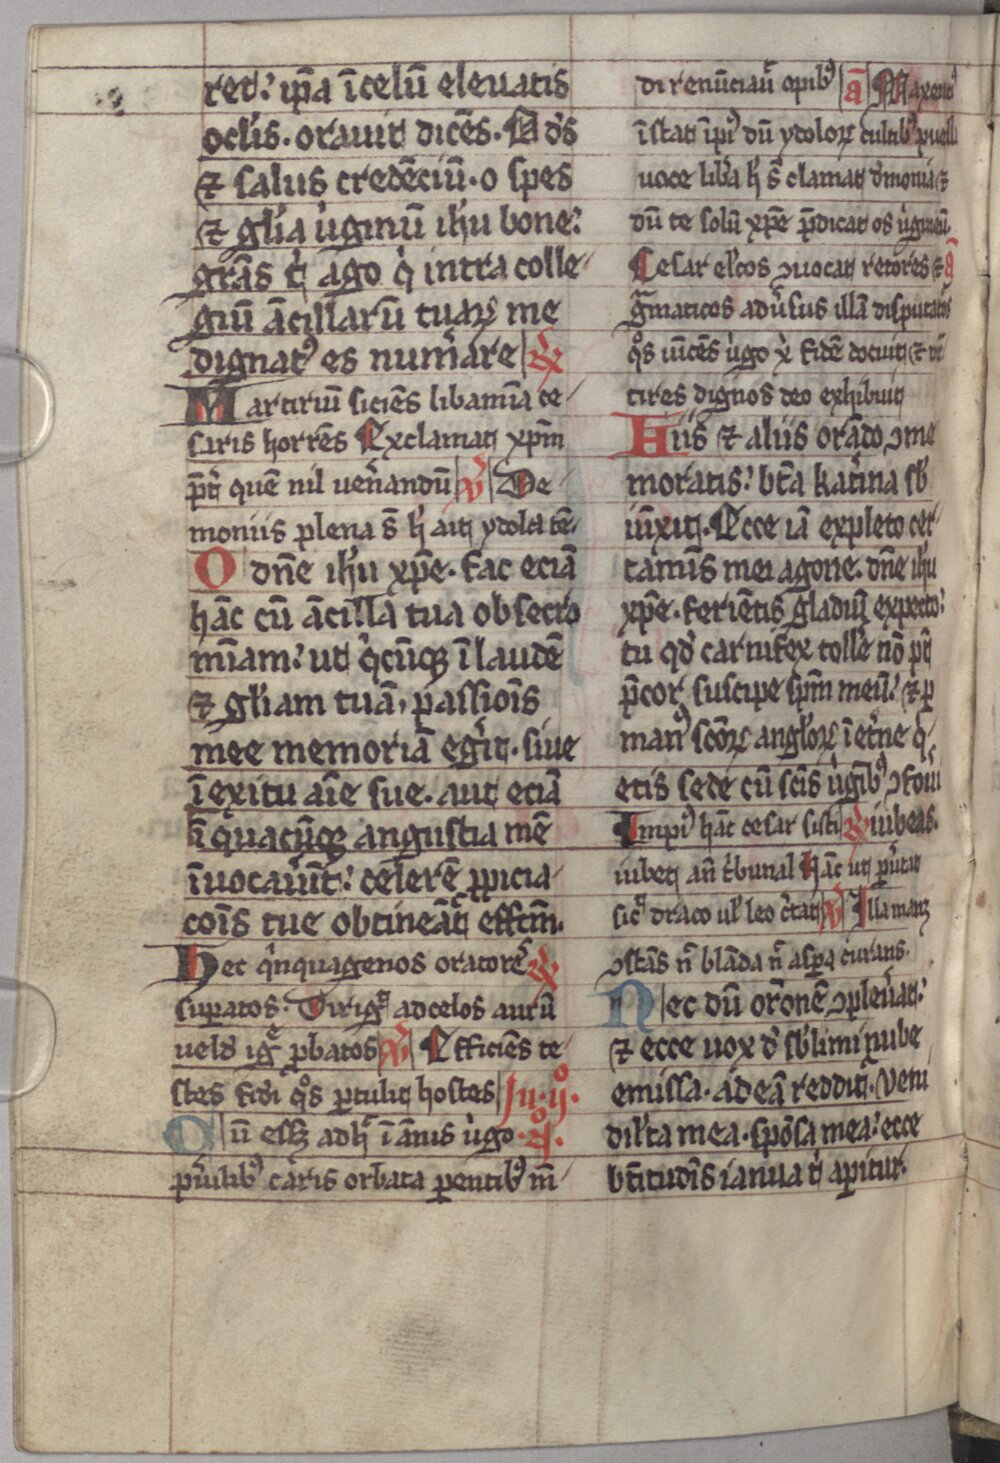 ret: ip̄a ī celū eleuatis
oc̄lis. orauit dicēs. A ds̄
⁊ salus credēciū. o spes
⁊ gl̄ia u̍ginū ih̄u bone:
grās t̍ ago q̍ intra colle
giū ācillarū tuaꝝ me
dignatꝰ es num̄are ℟
Martiriū siciēs libamīa ce
saris horrēs Exclamat xpm̄
pt̄ quē nil uen̄andū ℣ De
moniis plena s̄ h̍ ait ydola
O dn̄e ih̄u xp̄e. fac eciā
hāc cū ācilla tua obsecro
mīam: ut q̍cūqꝫ ī laudē
⁊ gl̄iam tuā, passiōis
mee memoriā eg̍it. siue
ī exitu aīe sue. aut eciā
ī quacūqꝫ angustia mē
īuocauīt: celerē ꝓpicia
cōis tue obtineāt effc̄m.
Hec q̍nquagenos oratores ℟
suꝑatos. Dirigit ad celos aurū
ueld̍ iḡ ꝓbatos ℣ Efficiēs te
stes fidi qͦs ꝑtulit hostes Iu. ij.
Cū essꝫ adhͨ ī ānis u̍go. a.
p̍uilibꝰ caris orbata parentibꝰ m̄
di renūciauͭ opibꝰ ā Maxentꝰ
īstat īpiꝰ dū ydoloꝝ cultibꝰ puelle
uoce lib̄a h̍ s̄ clamat d̍monia ⁊
dū te solū xp̄e p̄dicat os u̍gineū.
Cesar el̄cos ꝯuocat retores ⁊ ā
g̍maticos adu̍sus illā disputat̍
qͦs uīcēs u̍go x̍ fidē docuit ⁊ m̄
tires dignos deo exhibuit
Hiis ⁊ aliis orādo ꝯme
moratis: bt̄a kat̍ina sb̍
iūxit. Ecce iā expleto cer
tamīs mei agone. dn̄e ih̄u
xp̄e. feriētis gladiū expecto:
tu qd̍ carnifex tolle nō pt̄
p̄cor suscipe spm̄ meū: ⁊ ꝑ
manꝰ sc̄oꝝ angl̄oꝝ ī et̍ne q̍
etis sede cū sc̄is u̍gībꝰ ꝯfoui
Impiꝰ hāc cesar sisti ℟ iubeas.
iubet an̄ t̍bunal Hāc ut p̍utat
sic̍ draco ul̍ leo c̍tat ℣ Illa manꝫ
ꝯstās n̄ blāda n̄ aspa curans.
Nec dū or̄onē ꝯpleu̍at:
⁊ ecce uox d̍ sb̍limi nube
emissa. ad eā reddit. Veni
dil̄ta mea. spōsa mea: ecce
bt̄itudīs ianua t̍ aperitur.